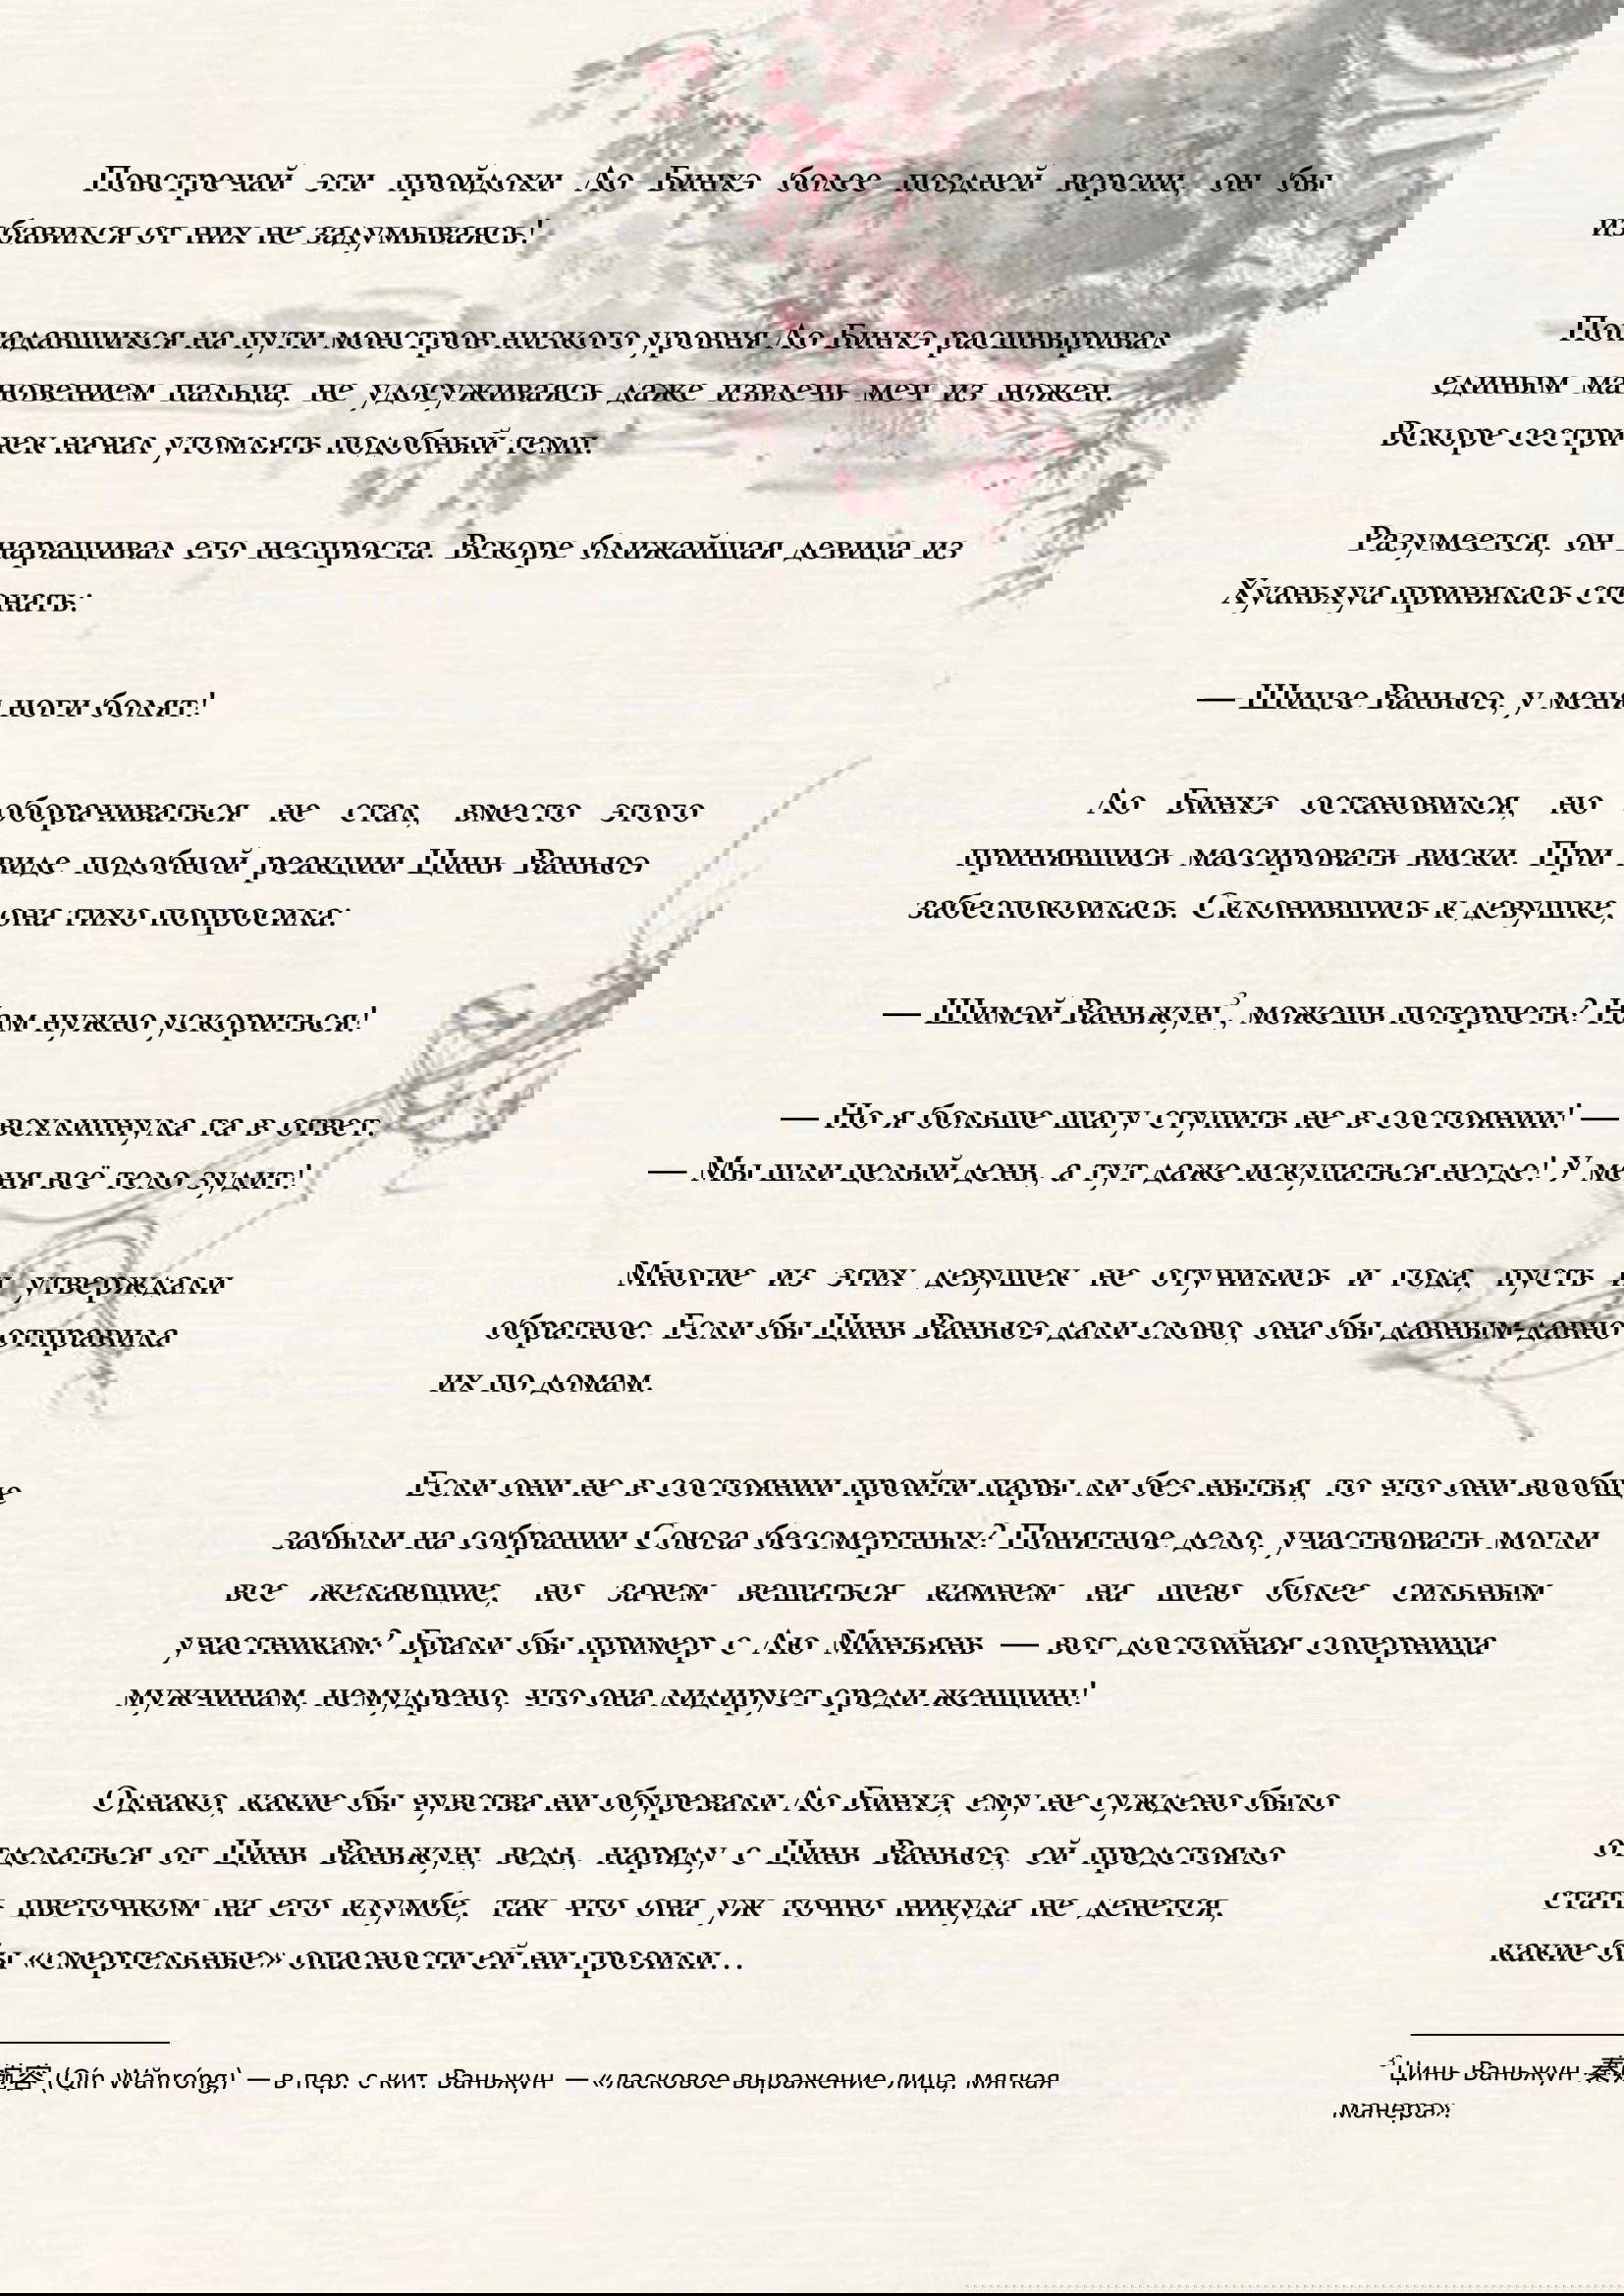 Повстречай эти пройдохи Ло Бинхэ более поздней версии, он бы
избавился от них не задумываясь!
Попадавшихся на пути монстров низкого уровня Ло Бинхэ расшвыривал
единым мановением пальца, не удосуживаясь даже извлечь меч из ножен.
Вскоре сестричек начал утомлять подобный темп.
Разумеется, он наращивал его неспроста. Вскоре ближайшая девица из
Хуаньхуа принялась стенать:
— Шицзе Ваньюэ, у меня ноги болят!
Ло Бинхэ остановился, но оборачиваться не стал, вместо этого
принявшись массировать виски. При виде подобной реакции Цинь Ваньюэ
забеспокоилась. Склонившись к девушке, она тихо попросила:
— Шимэй Ваньжун³, можешь потерпеть? Нам нужно ускориться!
— Но я больше шагу ступить не в состоянии! — всхлипнула та в ответ.
— Мы шли целый день, а тут даже искупаться негде! У меня всё тело зудит!
Многие из этих девушек не отучились и года, пусть и утверждали
обратное. Если бы Цинь Ваньюэ дали слово, она бы давным-давно отправила
их по домам.
Если они не в состоянии пройти пары ли без нытья, то что они вообще
забыли на собрании Союза бессмертных? Понятное дело, участвовать могли
все желающие, но зачем вешаться камнем на шею более сильным
участникам? Брали бы пример с Лю Минъянь — вот достойная соперница
мужчинам, немудрено, что она лидирует среди женщин!
Однако, какие бы чувства ни обуревали Ло Бинхэ, ему не суждено было
отделаться от Цинь Ваньжун, ведь, наряду с Цинь Ваньюэ, ей предстояло
стать цветочком на его клумбе, так что она уж точно никуда не денется,
какие бы «смертельные» опасности ей ни грозили…
³ Цинь Ваньжун 秦婉容 (Qín Wǎnróng) — в пер. с кит. Ваньжун — «ласковое выражение лица, мягкая
манера».